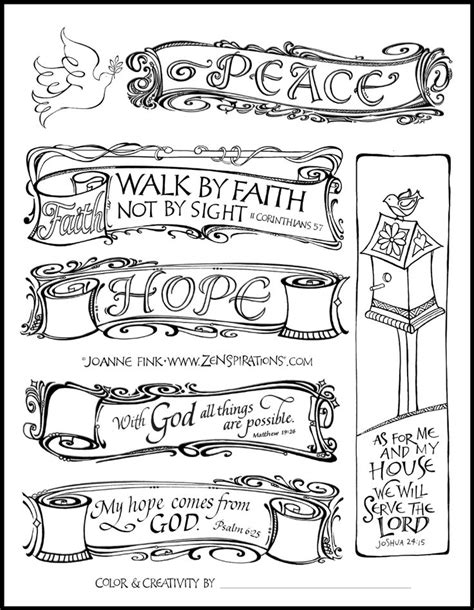 PEACE
Faith
WALK BY FAITH
NOT BY SIGHT II CORINTHIANS 5:7
HOPE
©JOANNE FINK·WWW.ZENSPIRATIONS®.COM
With God all things
are possible.
Matthew 19:26
My hope comes from
GOD. Psalm 62:5
AS FOR ME
AND MY
HOUSE
WE WILL
SERVE THE
LORD
JOSHUA 24:15
COLOR & CREATIVITY BY